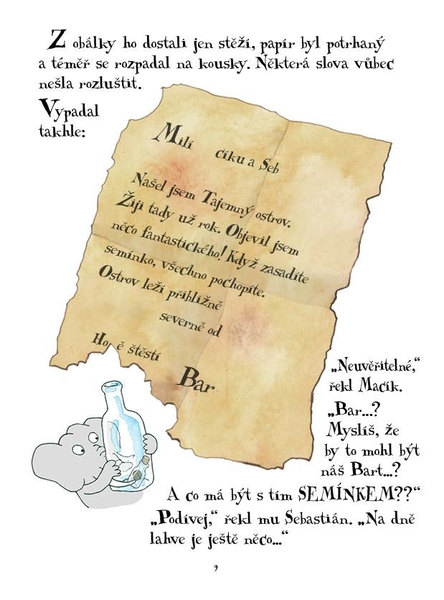 Z obálky ho dostali jen stěží, papír byl potrhaný
a téměř se rozpadal na kousky. Některá slova vůbec
nešla rozluštit.
Vypadal
takhle:
Milí číku a Seb
Našel jsem Tajemný ostrov.
Žiji tady už rok. Objevil jsem
něco fantastického! Když zasadíte
semínko, všechno pochopíte.
Ostrov leží přibližně
severně od
Ho ě štěstí
Bar
„Neuvěřitelné,“
řekl Macík.
„Bar...?
Myslíš, že
by to mohl být
náš Bart...?
A co má být s tím SEMÍNKEM??“
„Podívej,“ řekl mu Sebastián. „Na dně
lahve je ještě něco...“
9